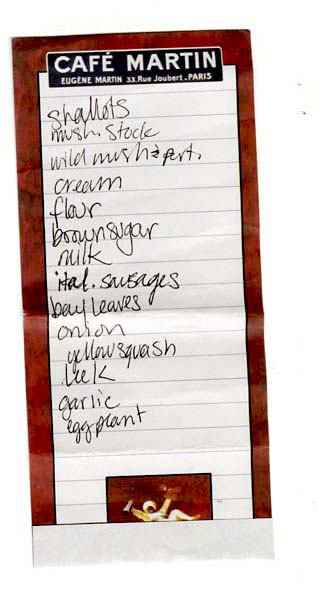 CAFÉ MARTIN
EUGÈNE MARTIN 33.Rue Joubert.PARIS
shallots
mush. stock
wild mush & port.
cream
flour
brown sugar
milk
ital. sausages
bay leaves
onion
yellow squash
leek
garlic
eggplant